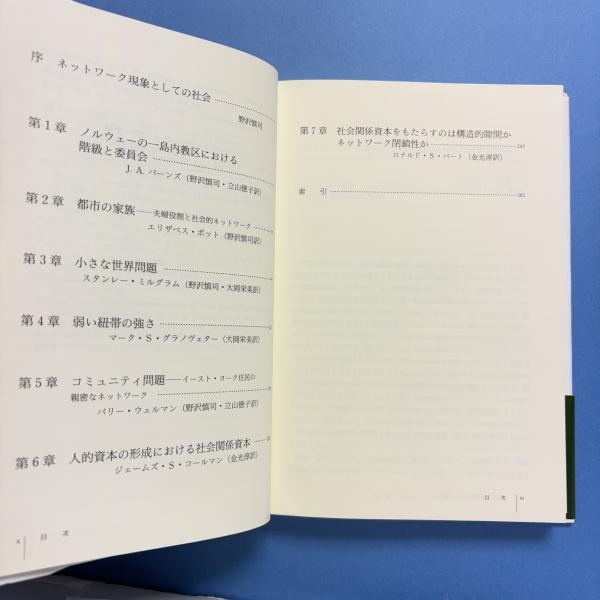 序 ネットワーク現象としての社会
野沢慎司
第1章 ノルウェーの一島内教区における
階級と委員会
J. A. バーンズ(野沢慎司・立山徳子訳)
第2章 都市の家族──夫婦役割と社会的ネットワーク
エリザベス・ボット(野沢慎司訳)
第3章 小さな世界問題
スタンレー・ミルグラム(野沢慎司・大岡栄美訳)
第4章 弱い紐帯の強さ
マーク・S・グラノヴェター(大岡栄美訳)
第5章 コミュニティ問題──イースト・ヨーク住民の
親密なネットワーク
バリー・ウェルマン(野沢慎司・立山徳子訳)
第6章 人的資本の形成における社会関係資本
ジェームズ・S・コールマン(金光淳訳)
x 目 次
第7章 社会関係資本をもたらすのは構造的隙間か
ネットワーク閉鎖性か 243
ロナルド・S・バート(金光淳訳)
索 引
目 次 xi